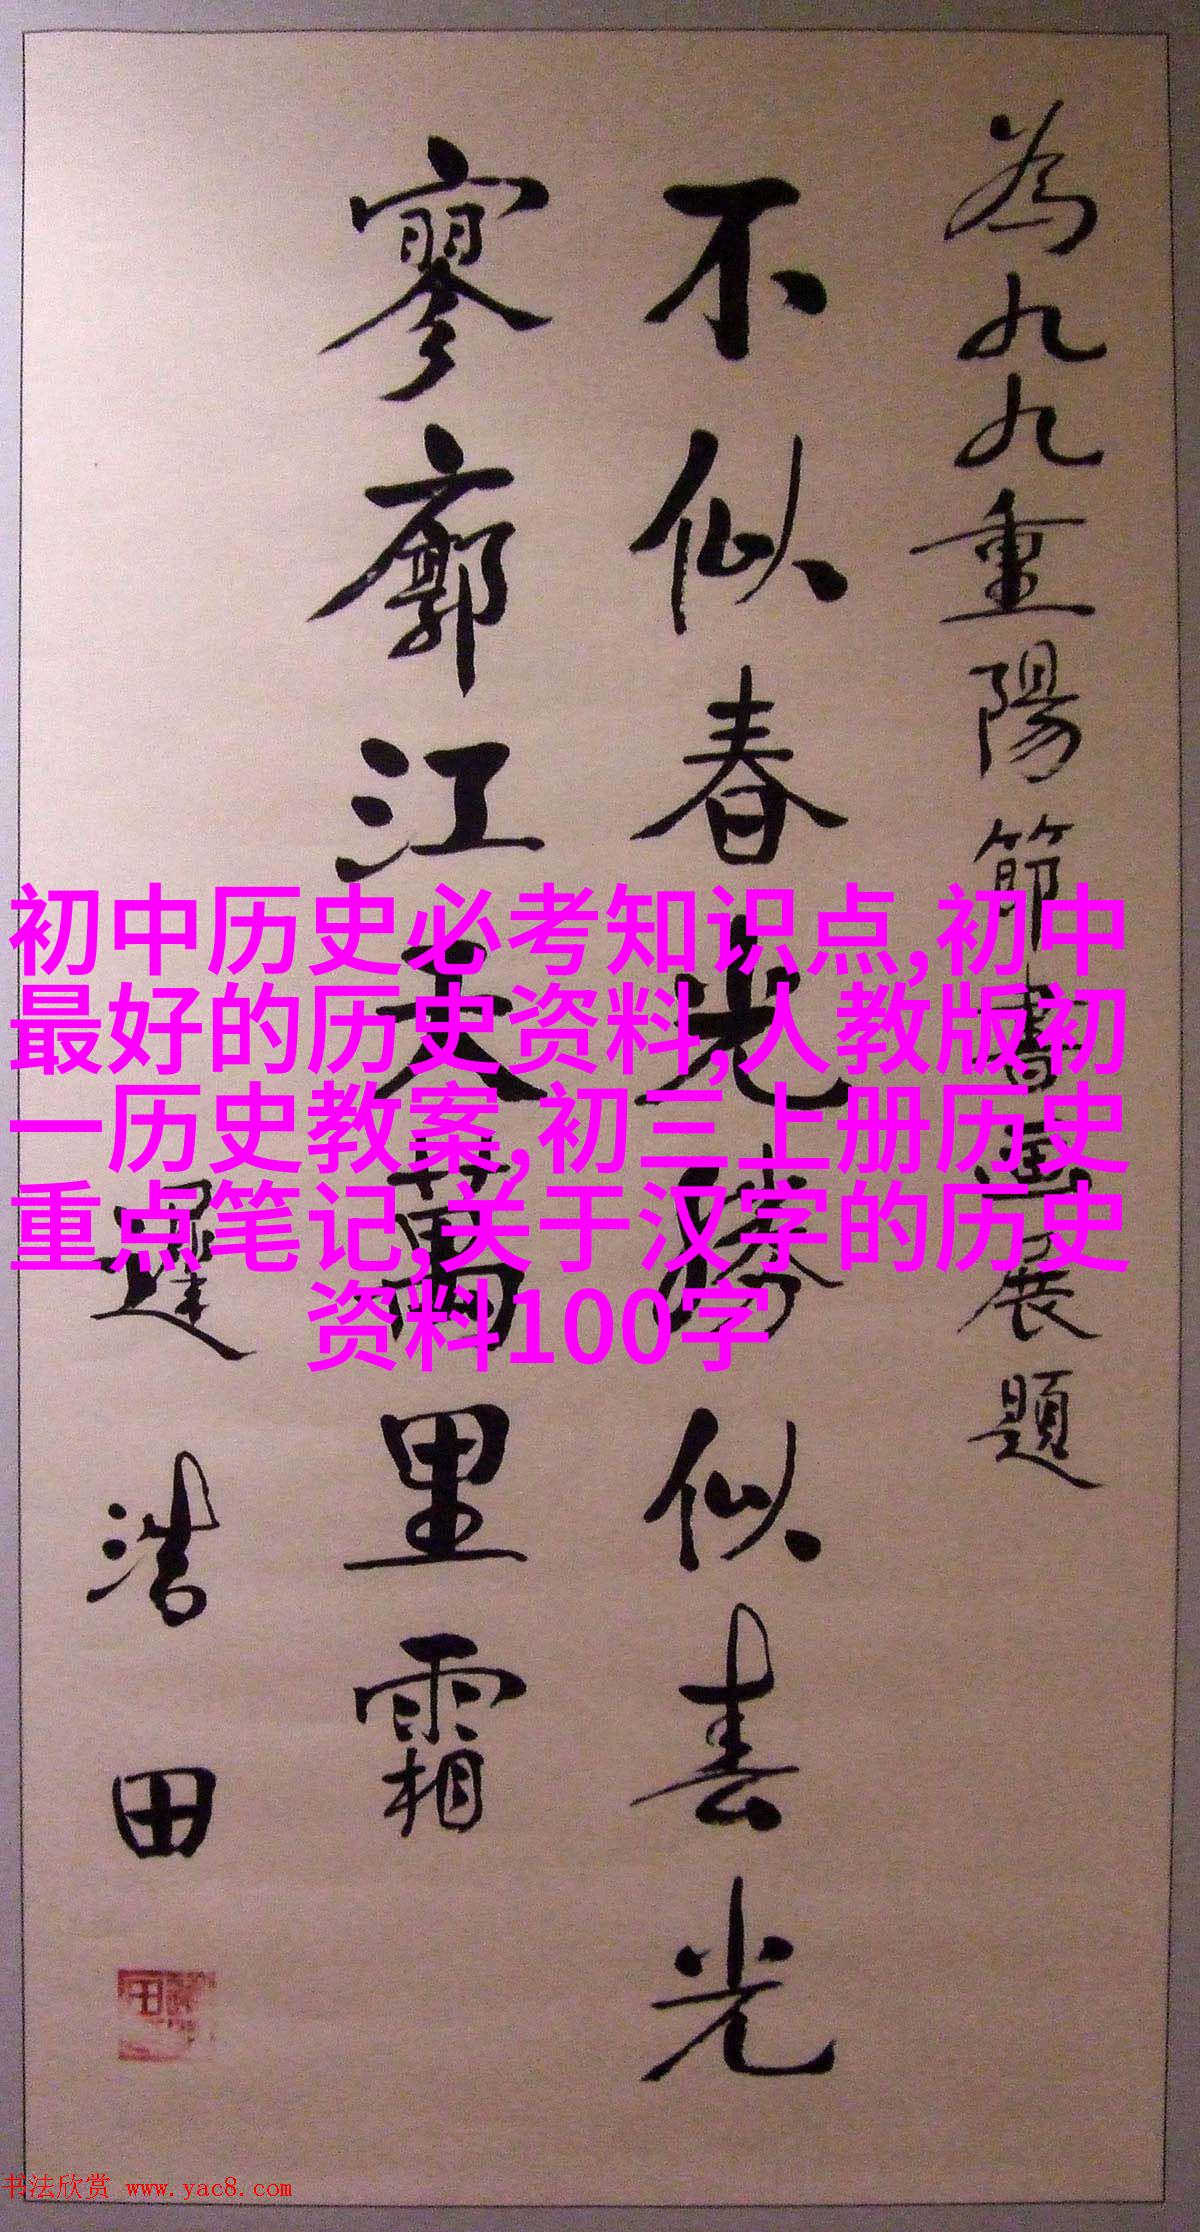 為九九重陽節書畫展題
不似春光勝似春光
寥廓江天萬里霜
遲浩田
初中历史必考知识点,初中
最好的历史资料,人教版初
一历史教案,初三上册历史
重点笔记,关于汉字的历史
资料100字
书法欣赏 www.yac8.com